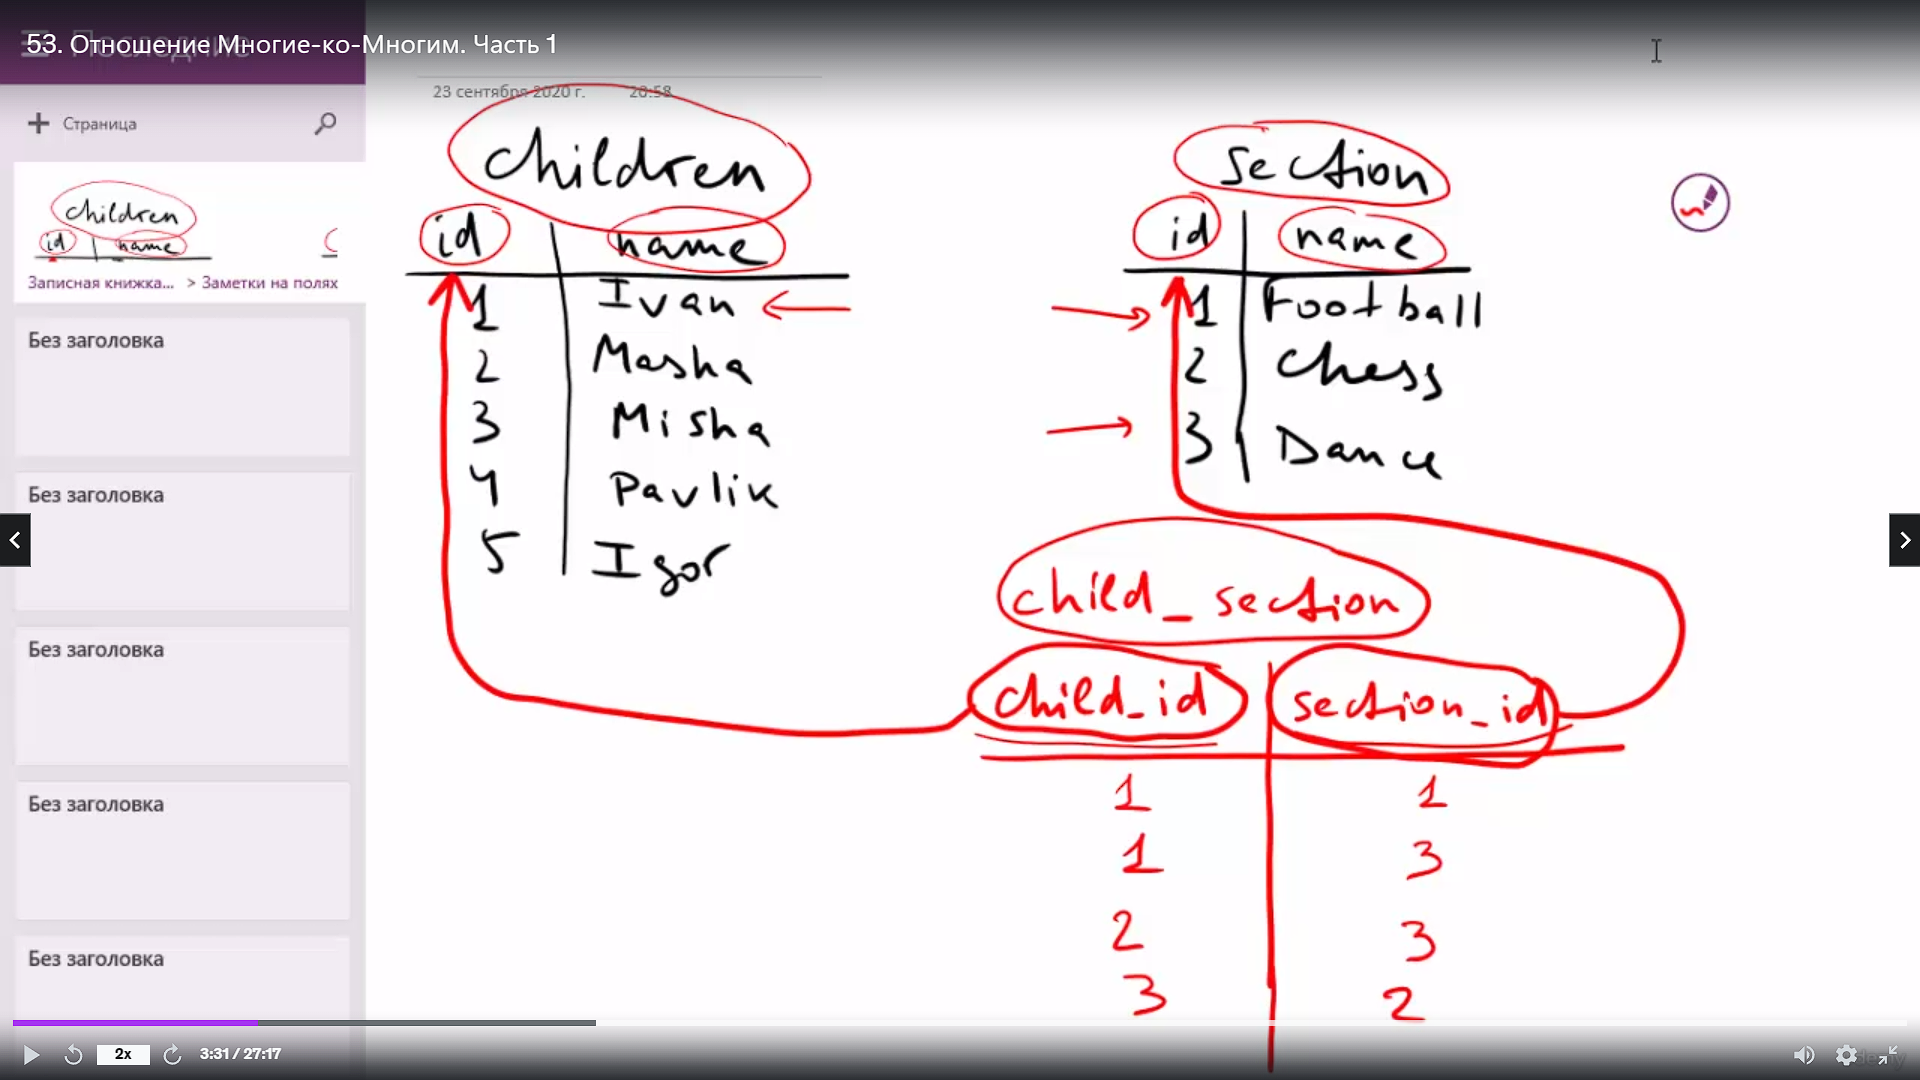 53. Отношение Многие-ко-Многим. Часть 1
Последние
23 сентября 2020 г. 20:58
Страница
children
id name
Записная книжка... > Заметки на полях
Без заголовка
Без заголовка
Без заголовка
Без заголовка
Без заголовка
children
id name
1 Ivan
2 Masha
3 Misha
4 Pavlik
5 Igor
section
id name
1 Football
2 Chess
3 Dance
child_section
child_id section_id
1 1
1 3
2 3
3 2
2x
3:31 / 27:17